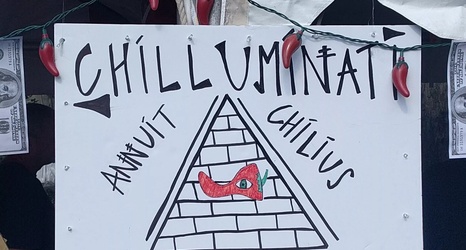 CHILLUMINATI
ANNUIT
CHILIUS